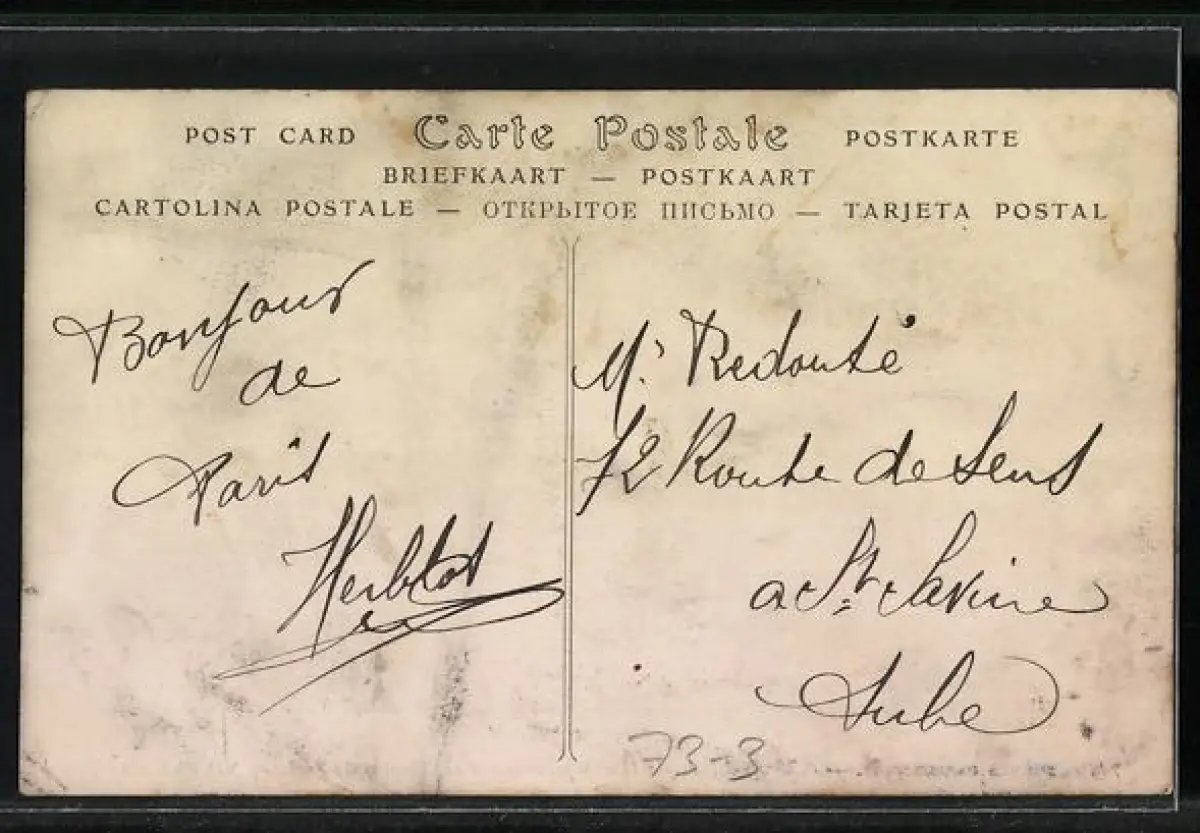 POST CARD Carte Postale POSTKARTE
BRIEFKAART — POSTKAART
CARTOLINA POSTALE — ОТКРЫТОЕ ПИСЬМО — TARJETA POSTAL
Bonjour
de
Paris
Mr Redouté
72 Route de Sens
a Ste Savine
Aube
73-3